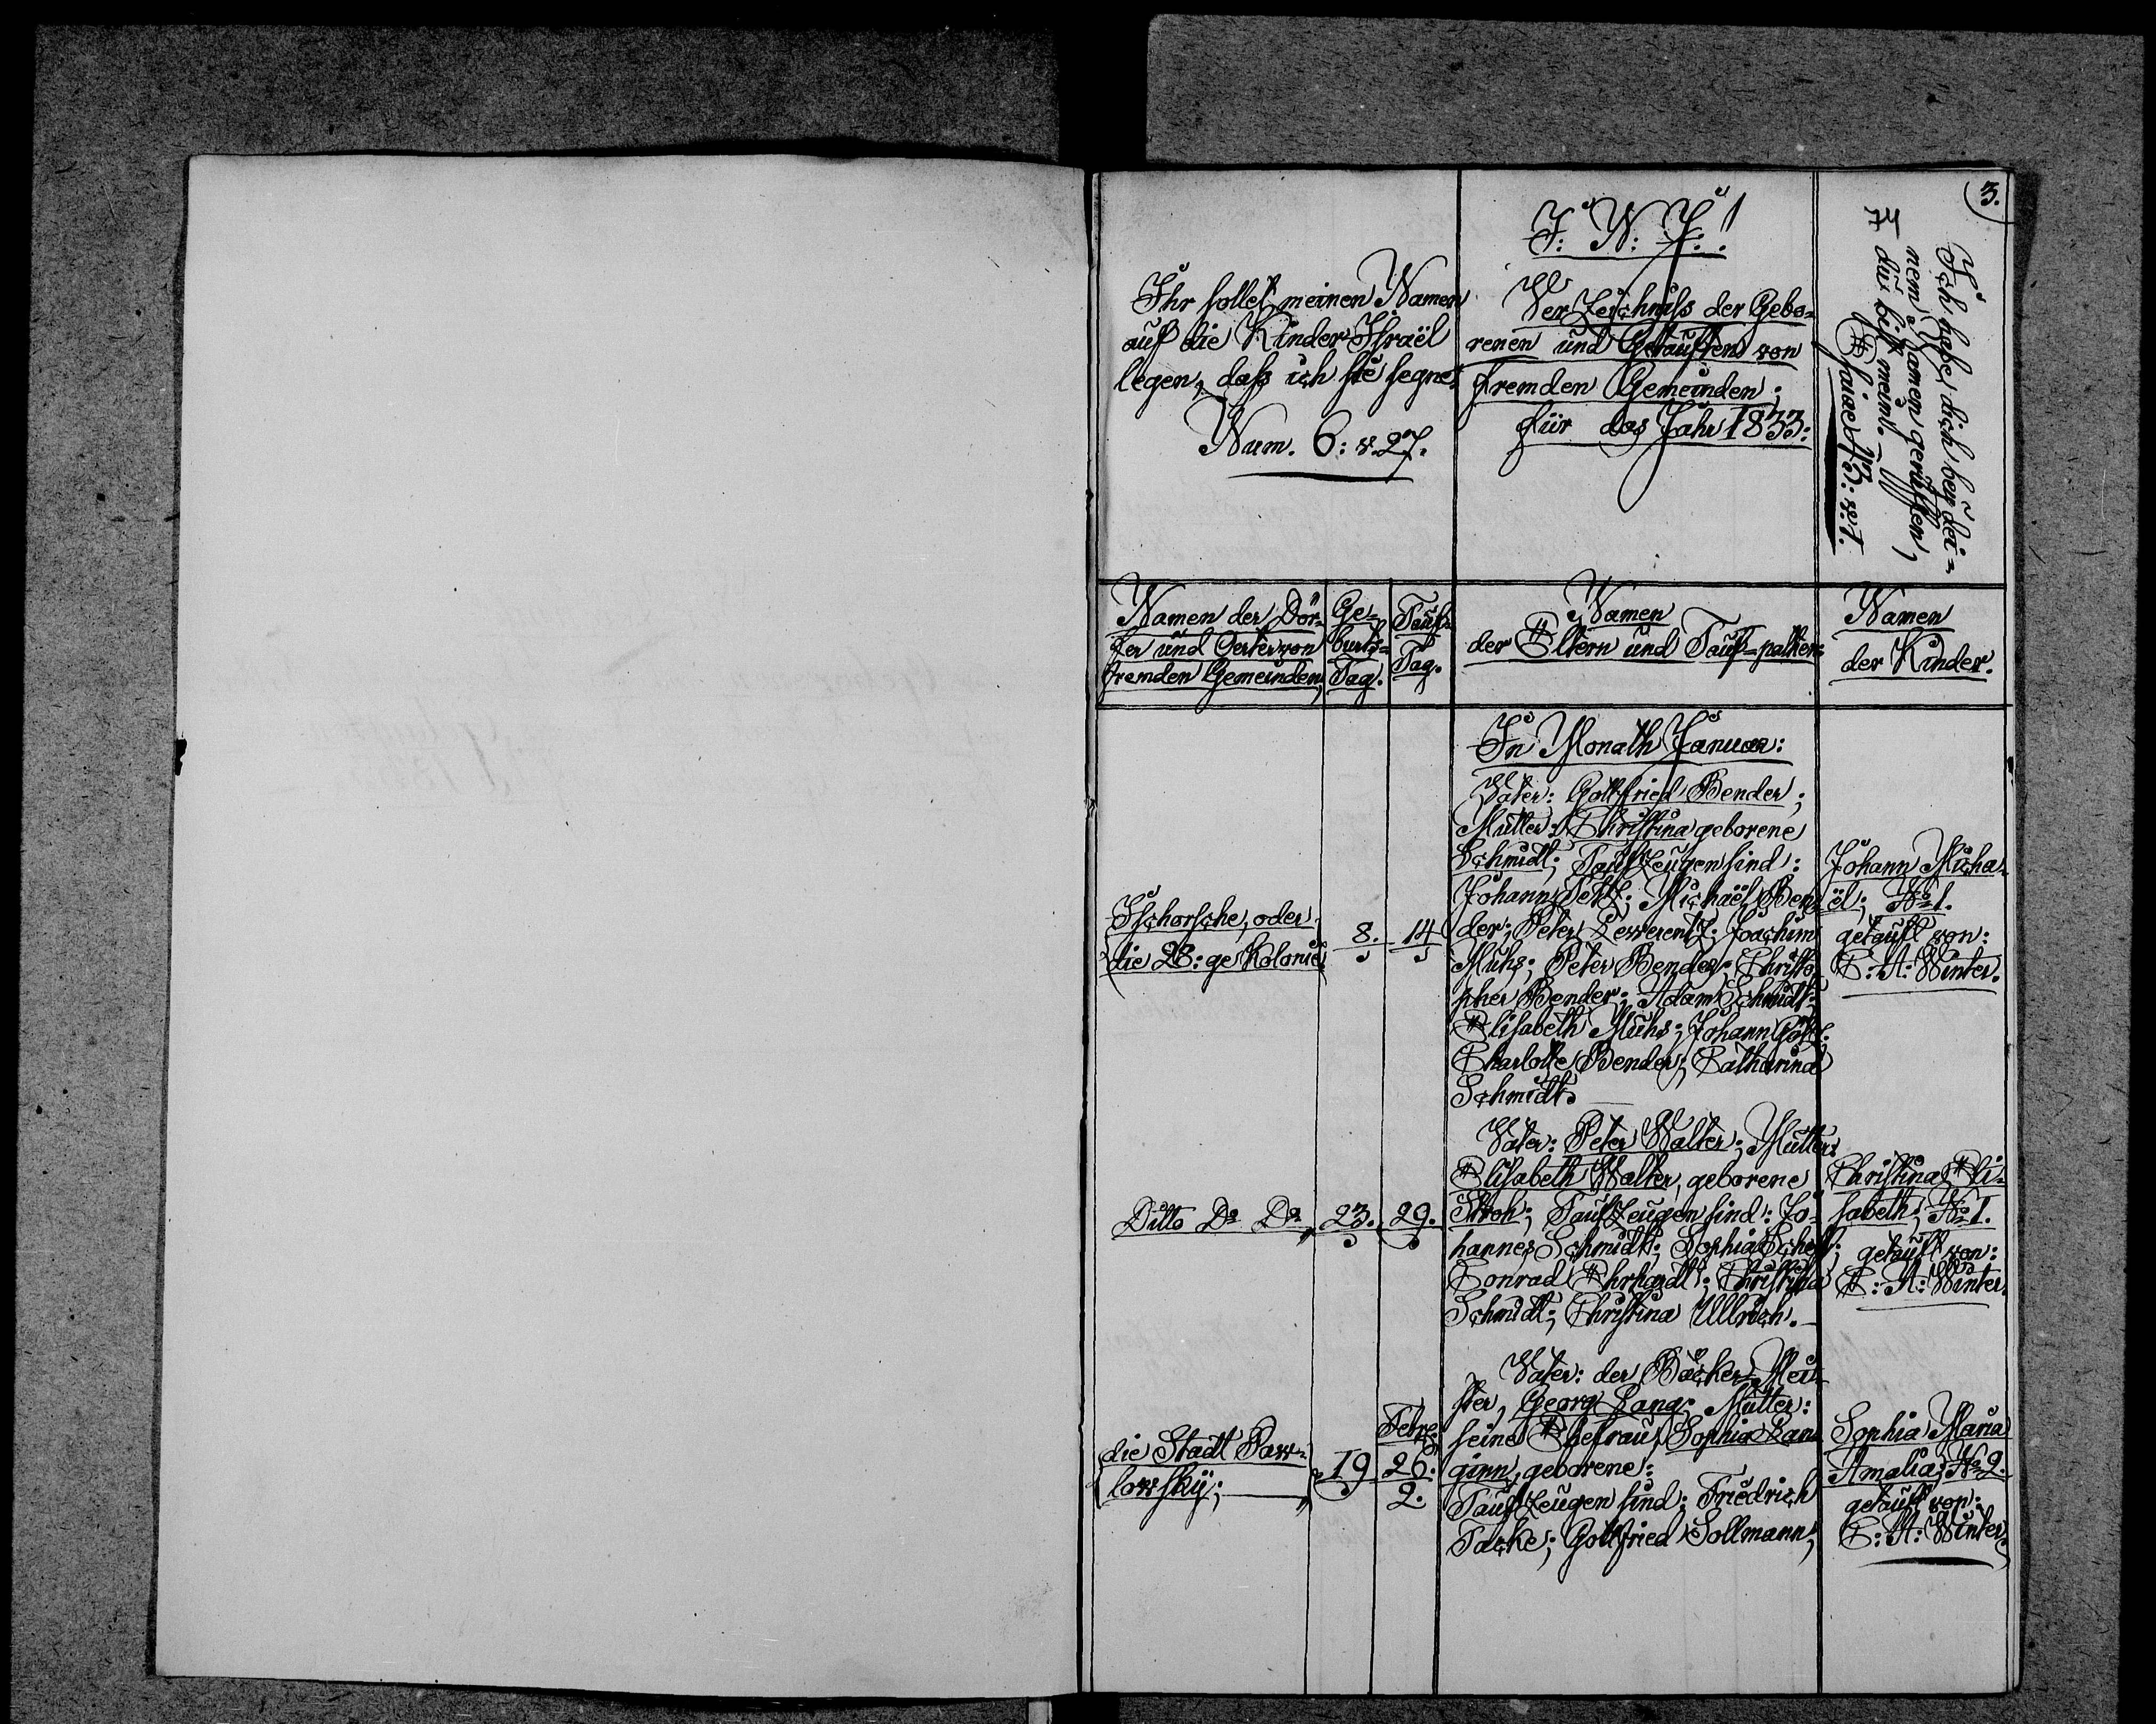 3.
Ihr sollet meinen Namen
auf die Kinder Israël
legen, daß ich sie segne.
Num. 6: v. 27.
J: N: J:
Verzeichniss der Gebo-
renen und Getauften von
fremden Gemeinden;
für das Jahr 1833:
Ich habe dich bey dei-
nem Namen geruffen,
du bist mein! —
Esaiae 43: v. 1.
Namen der Dör-
fer und Oerter von
fremden Gemeinden,
Ge-
burts-
Tag.
Tauf-
Tag.
Namen
der Eltern und Tauf-pathen:
Namen
der Kinder.
In Monath Januar:
Ischorsche, oder
die 28:ge Kolonie
8.
14
Vater: Gottfried Bender;
Mutter: Christina geborene
Schmidt; Taufzeugen sind:
Johann; Michaël Ben-
der; Peter; Joachim
Muhs; Peter Bender; Christo-
pher Bender; Adam Schmidt;
Elisabeth Muhs; Johann
Charlotte Bender; Catharina
Schmidt.
Johann Micha-
ël; No 1.
getauft von:
C: A: Winter.
Ditto Do Do
23.
29.
Vater: Peter Walter; Mutter:
Elisabeth Walter, geborene
Stroh; Taufzeugen sind: Jo-
hannes Schmidt; Sophia
Conrad Ehrhardt; Christina
Schmidt; Christina Ullrich.
Christina Eli-
sabeth; No 1.
getauft von:
C: A: Winter.
die Stadt Paw-
lowsky;
19
Febr:
26.
2.
Vater: der Bäcker-Mei-
ster, Georg Lang; Mutter:
seine Ehefrau, Sophia Lan-
ginn, geborene:
Taufzeugen sind: Friedrich
Tacke; Gottfried Sollmann;
Sophia Maria
Amalia; No 2.
getauft von:
C: A: Winter.